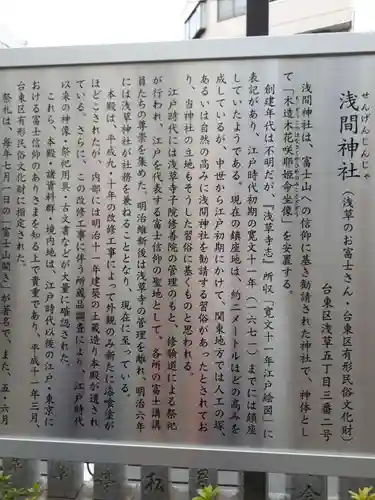 せんげんじんじゃ
浅間神社(浅草のお富士さん・台東区有形民俗文化財)
台東区浅草五丁目三番二号
浅間神社は、富士山への信仰に基き勧請された神社で、神体とし
て「木造木花咲耶姫命坐像」を安置する。
創建年代は不明だが、『浅草寺志』所収「寛文十一年江戸絵図」に
表記があり、江戸時代初期の寛文十一年(一六七一)までには鎮座
していたようである。現在の鎮座地は、約二メートルほどの高みを
成しているが、中世から江戸初期にかけて、関東地方では人工の塚、
あるいは自然の高みに浅間神社を勧請する習俗があったとされてお
り、当神社の立地もそうした習俗に基くものと思われる。
江戸時代には浅草寺子院修善院の管理のもと、修験道による祭祀
が行われ、江戸を代表する富士信仰の聖地として、各所の富士講講
員たちの尊崇を集めた。明治維新後は浅草寺の管理を離れ、明治六年
には浅草神社が社務を兼ねることとなり、現在に至っている。
本殿は、平成九・十年の改修工事によって外観のみ新たに漆喰塗が
ほどこされたが、内部には明治十一年建築の土蔵造り本殿が遺され
ている。さらに、この改修工事に伴う所蔵品調査により、江戸時代
以来の神像・祭祀用具・古文書などが大量に確認された。
これら、本殿、諸資料群、境内地は、江戸時代以後の江戸・東京に
おける富士信仰のありさまをみる上で貴重であり、平成十一年三月、
台東区有形民俗文化財に指定された。
祭礼は、毎年七月一日の「富士山開き」が著名で、また、五・六月